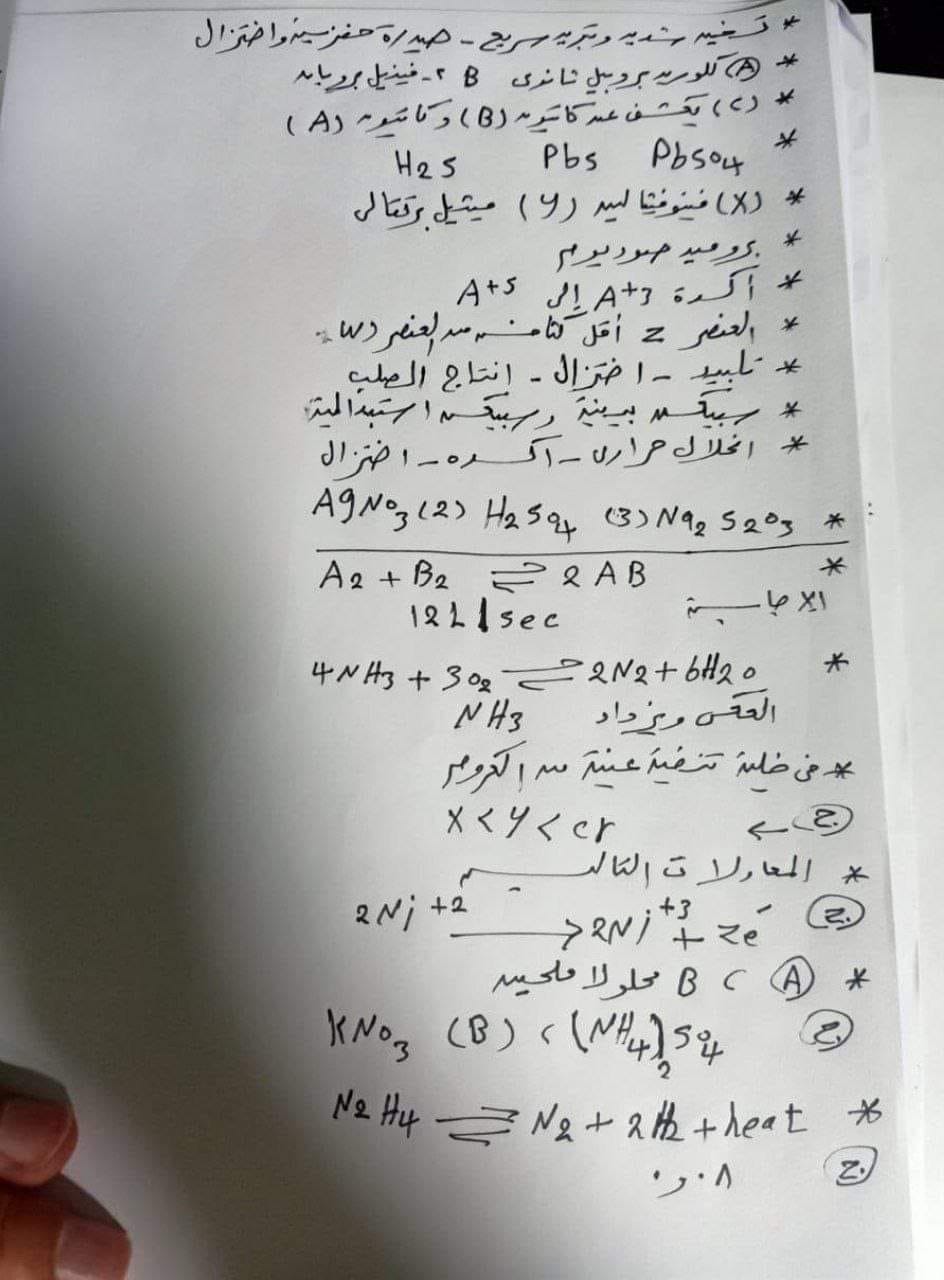 * تسخين شديد وتبريد سريع - هيدرة حفزية واختزال
* (A) كلوريد بروبيل ثانوى B ٢- فينيل بروبان
* (C) يكشف عن كاتيون (B) وكاتيون (A)
* H2S PbS PbSO4
* (X) فينوفيثالين (Y) ميثيل برتقالى
* بروميد صوديوم
* أكسدة A+3 إلى A+5
* العنصر Z أقل كثافة من العنصر W
* تلبيد - اختزال - انتاج الصلب
* سبيكة بينية وسبيكة استبدالية
* انحلال حرارى - اكسده - اختزال
* AgNO3 (2) H2SO4 (3) Na2S2O3
* A2 + B2 ⇌ 2AB
الاجابة
12L/sec
* 4NH3 + 3O2 ⇌ 2N2 + 6H2O
العكس ويزداد NH3
* فى خلية تنقية عينة من الكروم
(ج) ← X < Y < Cr
* المعادلات التاليـــــــة
(ج) 2Ni+2 → 2Ni+3 + 2e-
* (A) ، B محلولا ملحين
(ج) KNO3 (B) ، (NH4)2SO4
* N2H4 ⇌ N2 + 2H2 + heat
(ج) ٠,٠٨